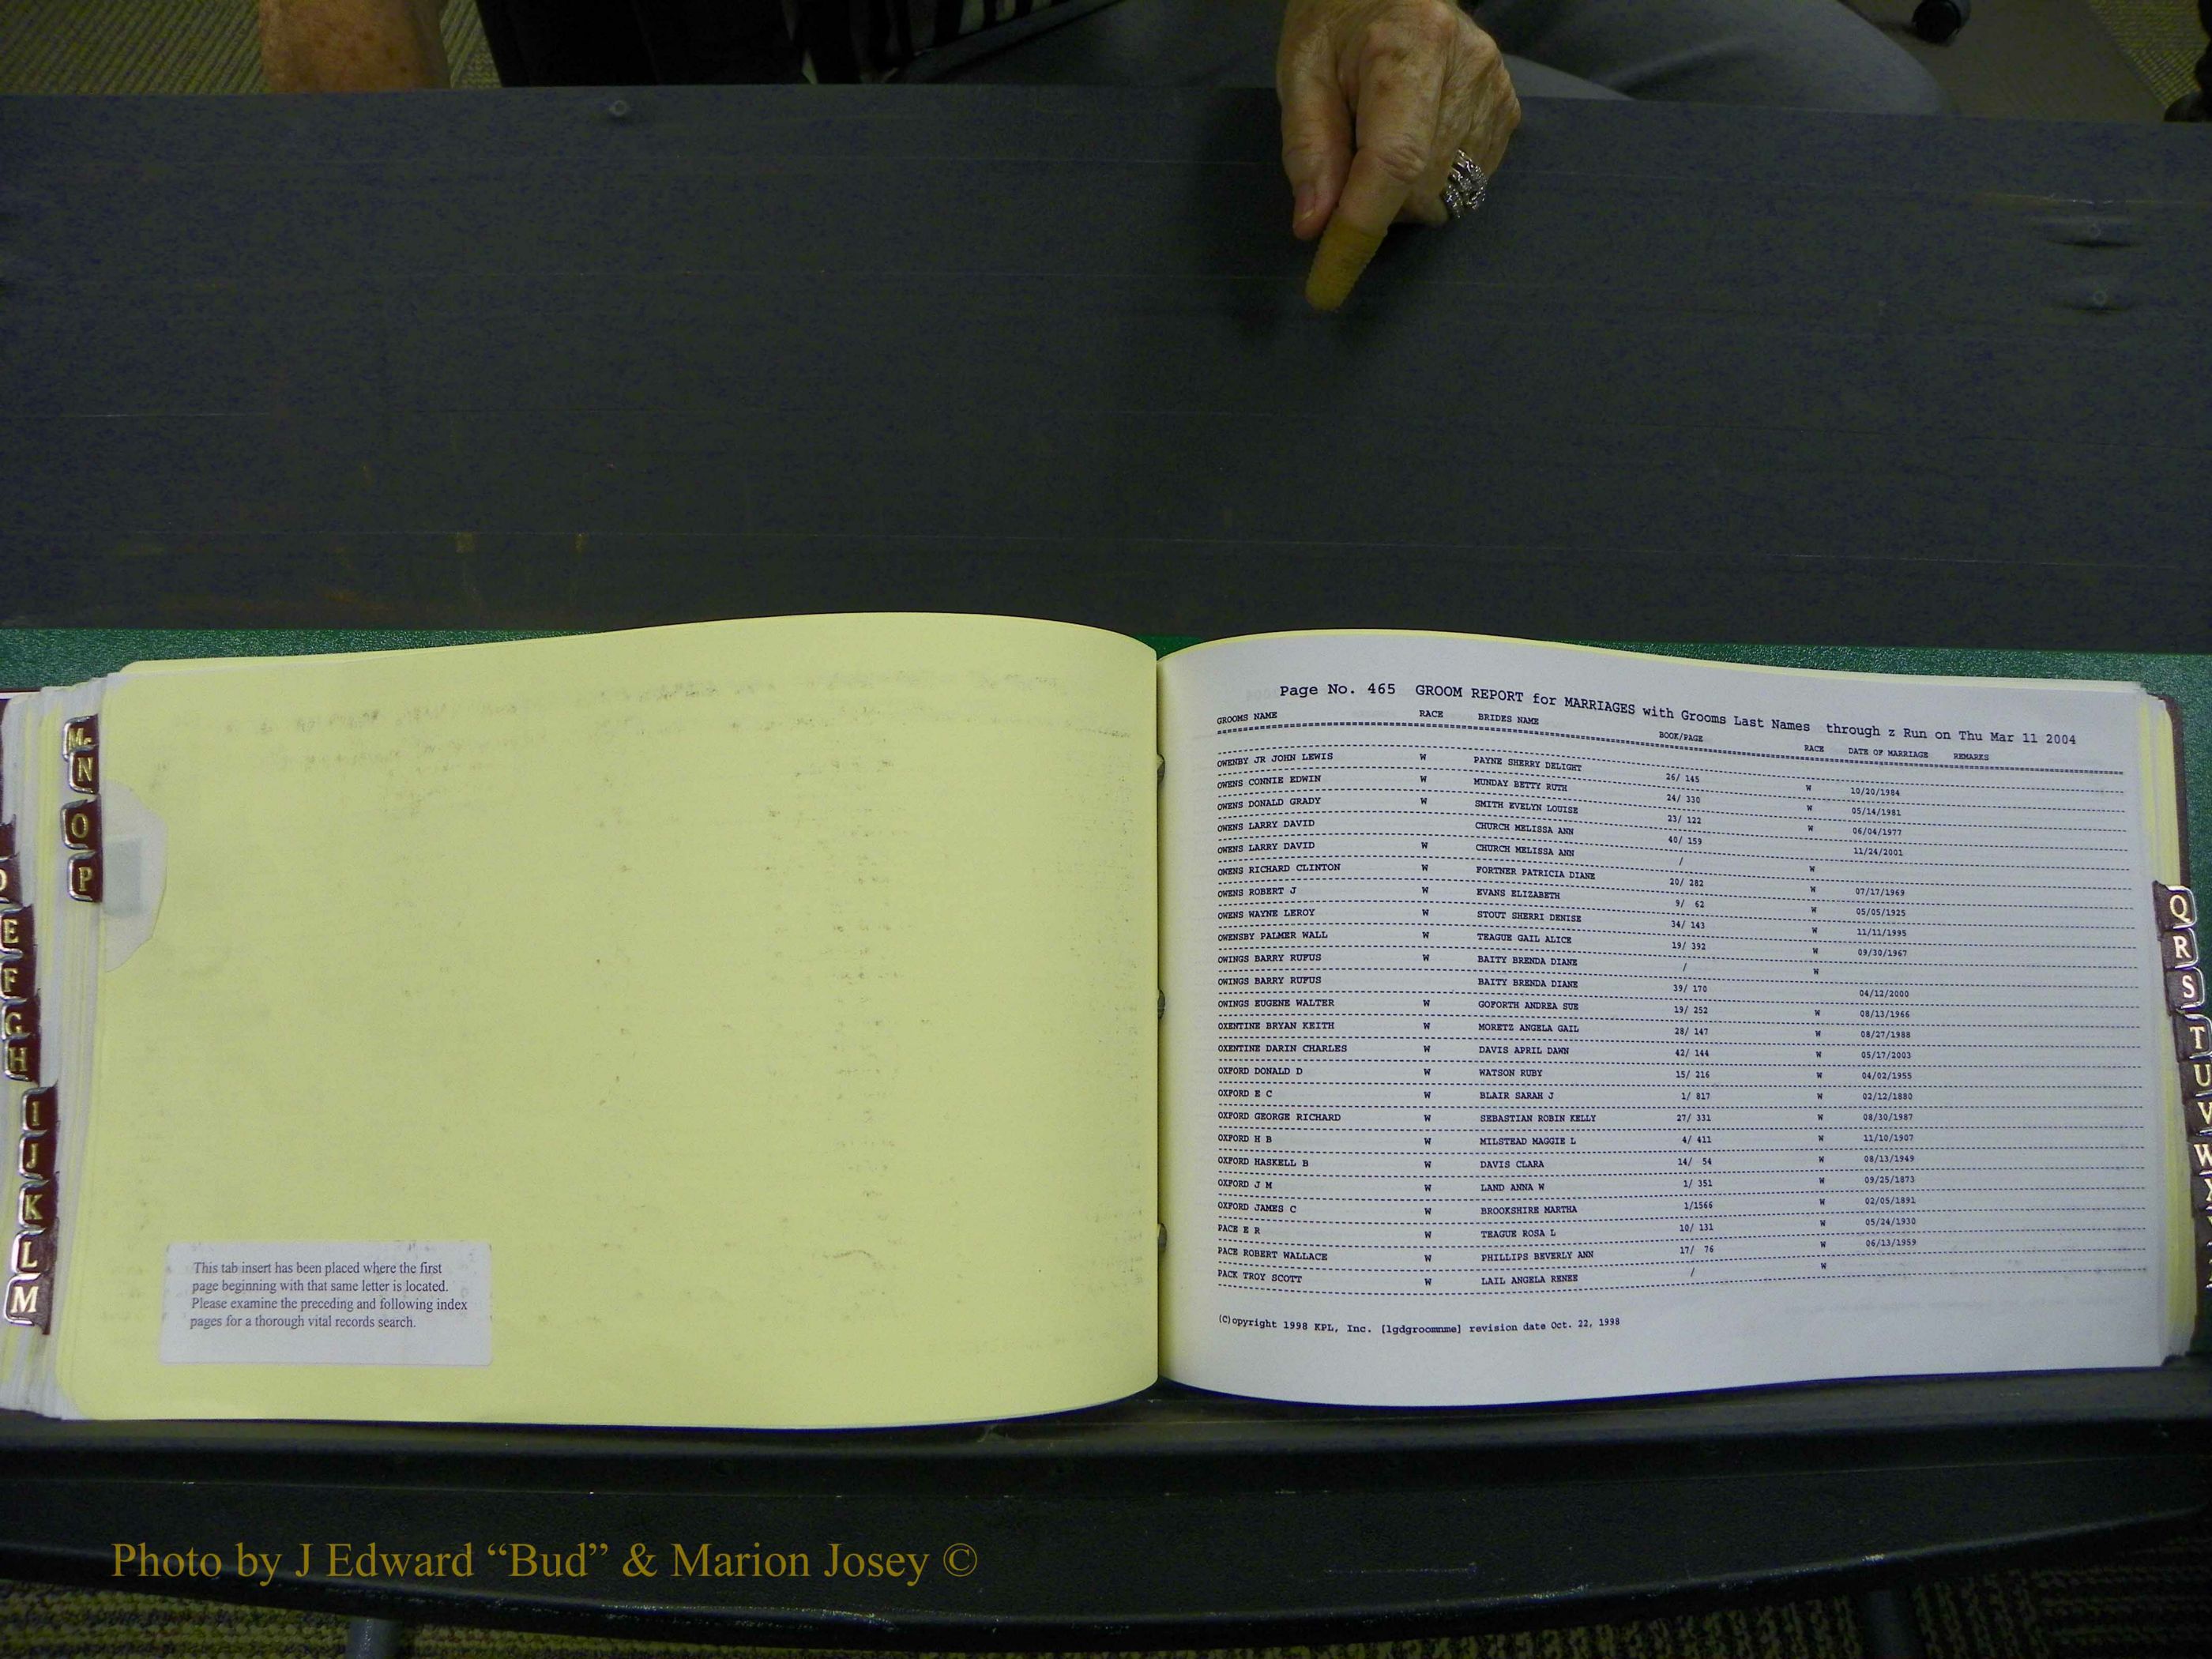 Mc
N
O
P
D
E
F
G
H
I
J
K
L
M
This tab insert has been placed where the first
page beginning with that same letter is located.
Please examine the preceding and following index
pages for a thorough vital records search.
Page No. 465 GROOM REPORT for MARRIAGES with Grooms Last Names through z Run on Thu Mar 11 2004
GROOMS NAME RACE BRIDES NAME BOOK/PAGE RACE DATE OF MARRIAGE REMARKS
OWENBY JR JOHN LEWIS W PAYNE SHERRY DELIGHT 26/ 145 W 10/20/1984
OWENS CONNIE EDWIN W MUNDAY BETTY RUTH 24/ 330 W 05/14/1981
OWENS DONALD GRADY W SMITH EVELYN LOUISE 23/ 122 W 06/04/1977
OWENS LARRY DAVID CHURCH MELISSA ANN 40/ 159 11/24/2001
OWENS LARRY DAVID W CHURCH MELISSA ANN / W
OWENS RICHARD CLINTON W FORTNER PATRICIA DIANE 20/ 282 W 07/17/1969
OWENS ROBERT J W EVANS ELIZABETH 9/ 62 W 05/05/1925
OWENS WAYNE LEROY W STOUT SHERRI DENISE 34/ 143 W 11/11/1995
OWENSBY PALMER WALL W TEAGUE GAIL ALICE 19/ 392 W 09/30/1967
OWINGS BARRY RUFUS W BAITY BRENDA DIANE / W
OWINGS BARRY RUFUS BAITY BRENDA DIANE 39/ 170 04/12/2000
OWINGS EUGENE WALTER W GOFORTH ANDREA SUE 19/ 252 W 08/13/1966
OXENTINE BRYAN KEITH W MORETZ ANGELA GAIL 28/ 147 W 08/27/1988
OXENTINE DARIN CHARLES W DAVIS APRIL DAWN 42/ 144 W 05/17/2003
OXFORD DONALD D W WATSON RUBY 15/ 216 W 04/02/1955
OXFORD E C W BLAIR SARAH J 1/ 817 W 02/12/1880
OXFORD GEORGE RICHARD W SEBASTIAN ROBIN KELLY 27/ 331 W 08/30/1987
OXFORD H B W MILSTEAD MAGGIE L 4/ 411 W 11/10/1907
OXFORD HASKELL B W DAVIS CLARA 14/ 54 W 08/13/1949
OXFORD J M W LAND ANNA W 1/ 351 W 09/25/1873
OXFORD JAMES C W BROOKSHIRE MARTHA 1/1566 W 02/05/1891
PACE E R W TEAGUE ROSA L 10/ 131 W 05/24/1930
PACE ROBERT WALLACE W PHILLIPS BEVERLY ANN 17/ 76 W 06/13/1959
PACK TROY SCOTT W LAIL ANGELA RENEE / W
(C)opyright 1998 KPL, Inc. [lgdgroomnme] revision date Oct. 22, 1998
Q
R
S
T
U
V
W
Photo by J Edward “Bud” & Marion Josey ©